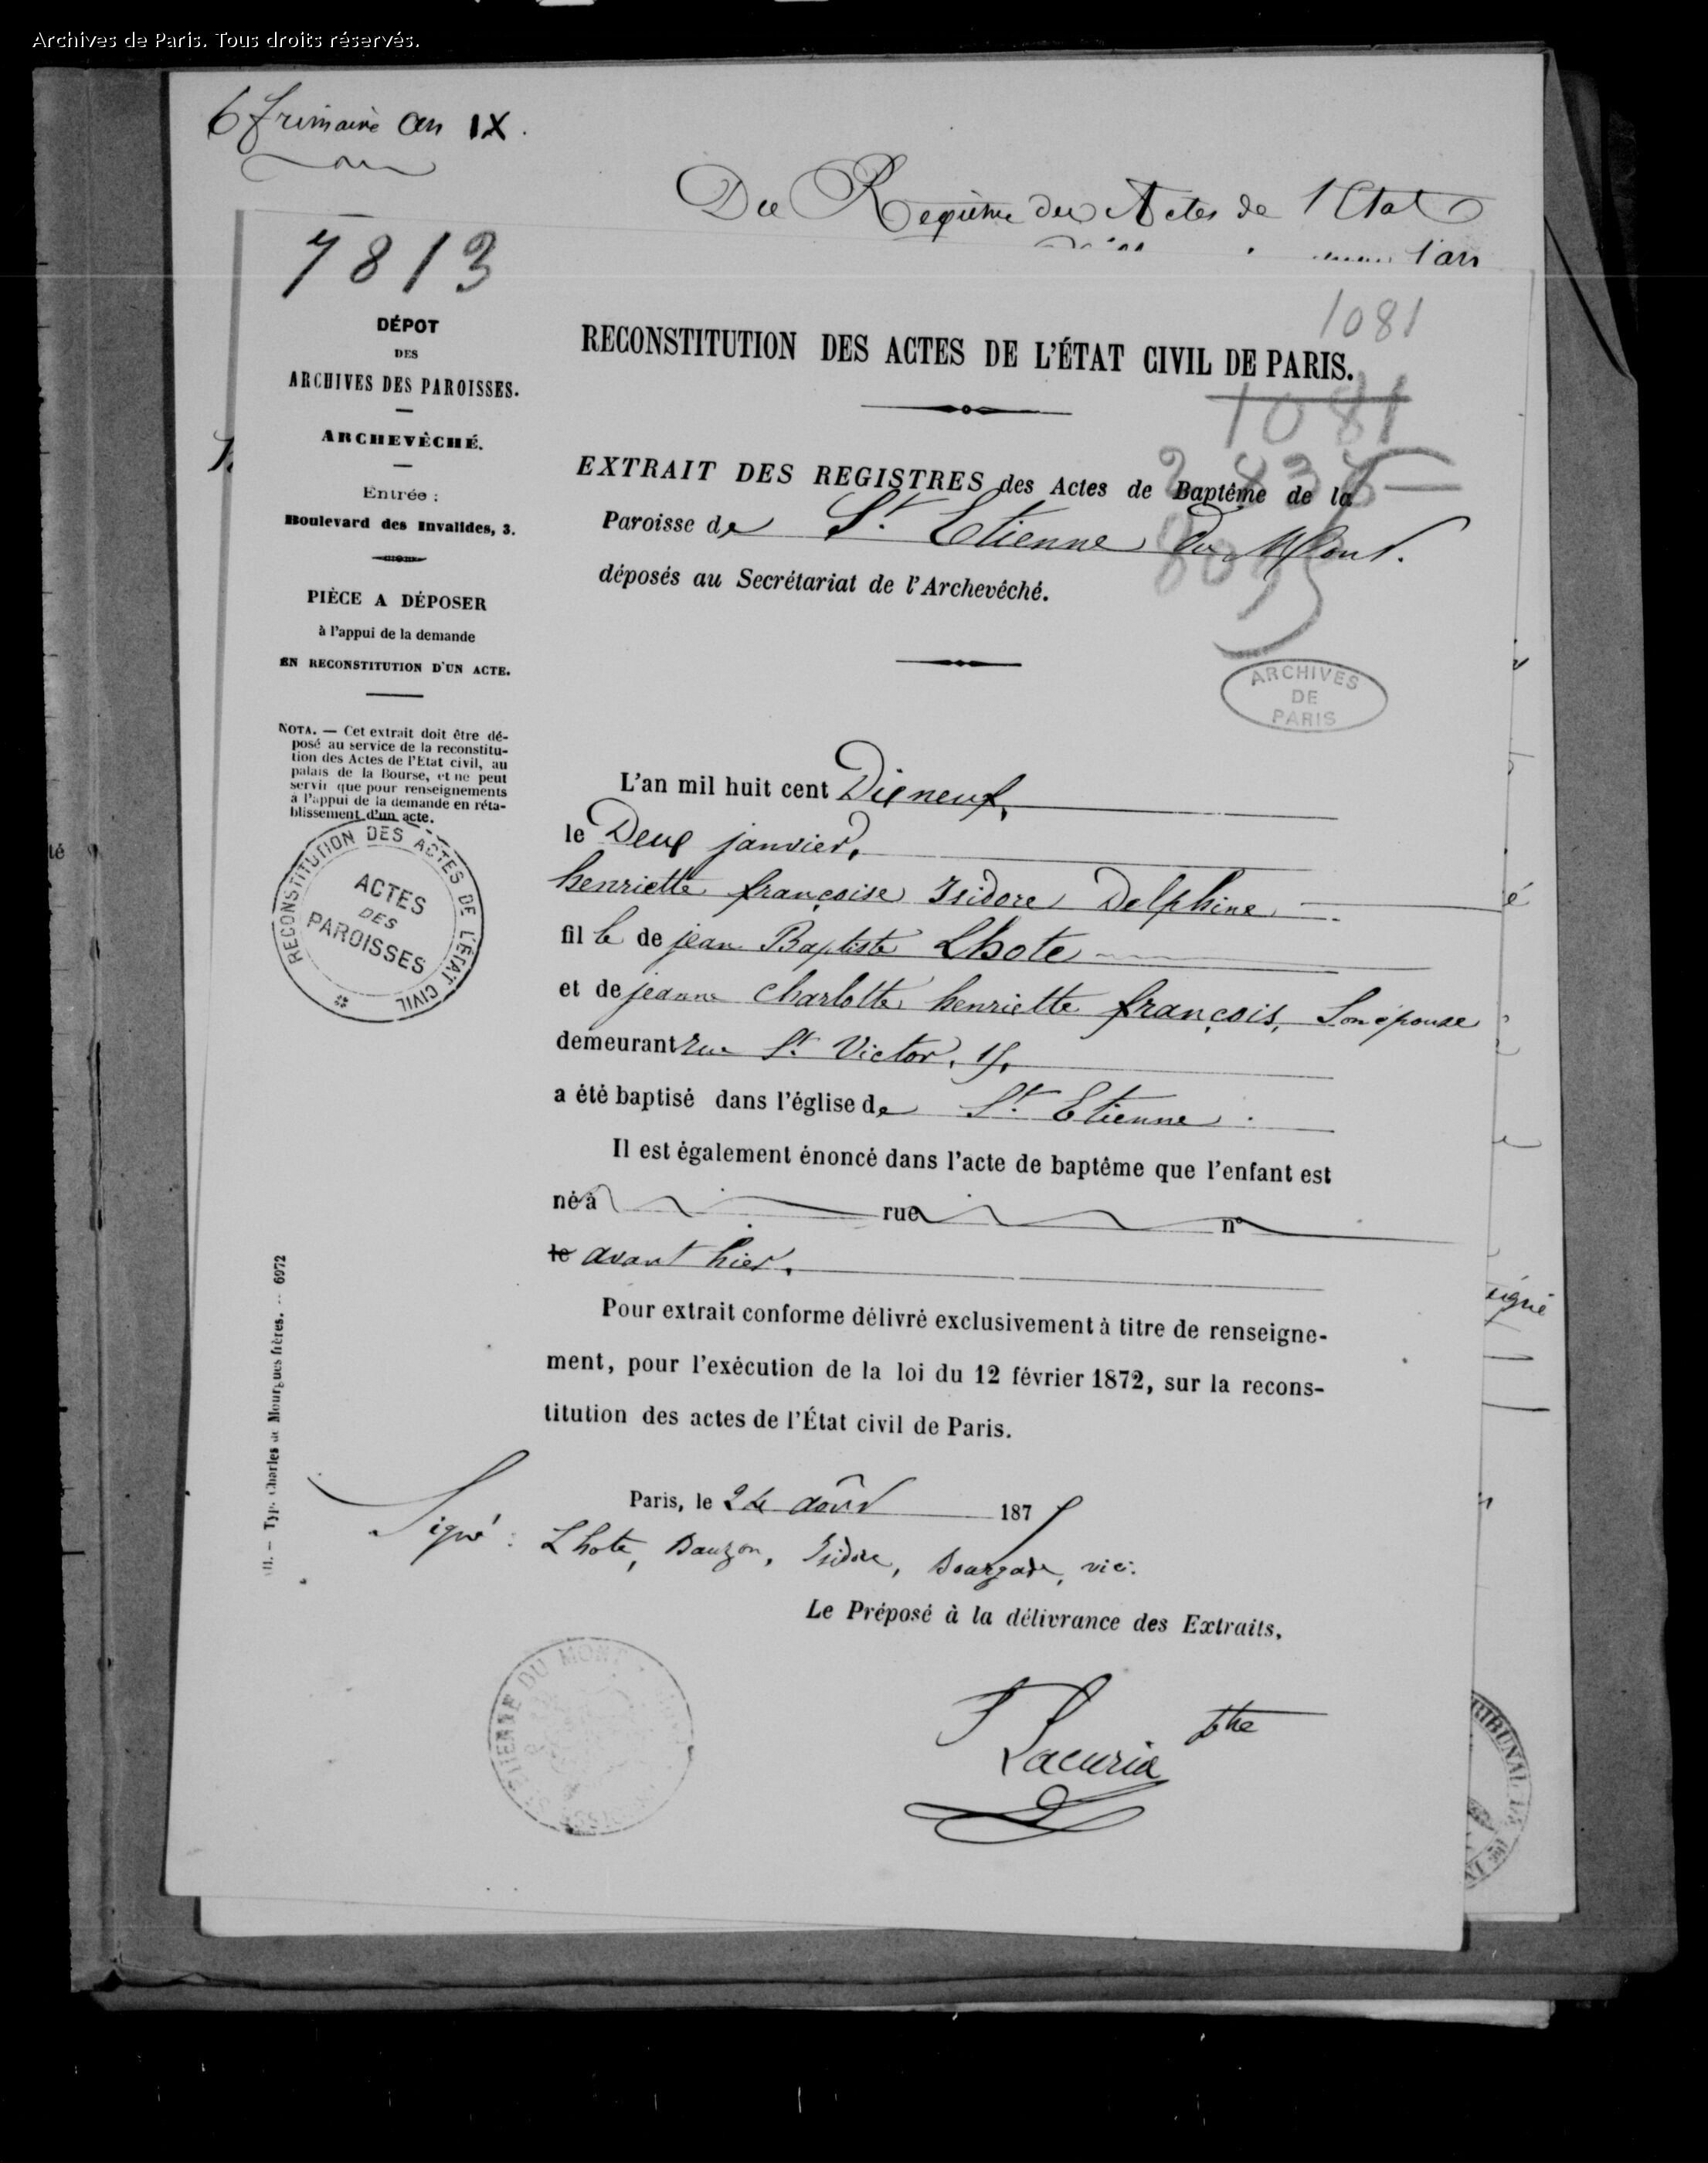 Archives de Paris. Tous droits réservés.
6 frimaire an IX.
Du Registre des Actes de l'Etat
l'an
7813
DÉPOT
DES
ARCHIVES DES PAROISSES.
ARCHEVÊCHÉ.
Entrée :
Boulevard des Invalides, 3.
PIÈCE A DÉPOSER
à l'appui de la demande
EN RECONSTITUTION D'UN ACTE.
NOTA. — Cet extrait doit être dé-
posé au service de la reconstitu-
tion des Actes de l'Etat civil, au
palais de la Bourse, et ne peut
servir que pour renseignements
à l'appui de la demande en réta-
blissement d'un acte.
RECONSTITUTION DES ACTES DE L'ÉTAT CIVIL
ACTES
DES
PAROISSES
Typ. Charles de Mourgues frères. — 6972
1081
RECONSTITUTION DES ACTES DE L'ÉTAT CIVIL DE PARIS.
1081
EXTRAIT DES REGISTRES des Actes de Baptême de la
Paroisse de St. Etienne du Mont.
déposés au Secrétariat de l'Archevêché.
ARCHIVES
DE
PARIS
L'an mil huit cent Dixneuf,
le Deux janvier,
henriette françoise Isidore Delphine
fil le de jean Baptiste Lhote
et de jeanne charlotte henriette françois, Son épouse
demeurant rue St. Victor, 15,
a été baptisé dans l'église de St. Etienne.
Il est également énoncé dans l'acte de baptême que l'enfant est
né à rue n°
le avant hier.
Pour extrait conforme délivré exclusivement à titre de renseigne-
ment, pour l'exécution de la loi du 12 février 1872, sur la recons-
titution des actes de l'État civil de Paris.
Paris, le 24 août 1875
Signé : Lhote, Dauzon, Isidore, Bourgade, vic:
Le Préposé à la délivrance des Extraits,
Lacuria ptre
ST ETIENNE DU MONT
TRIBUNAL